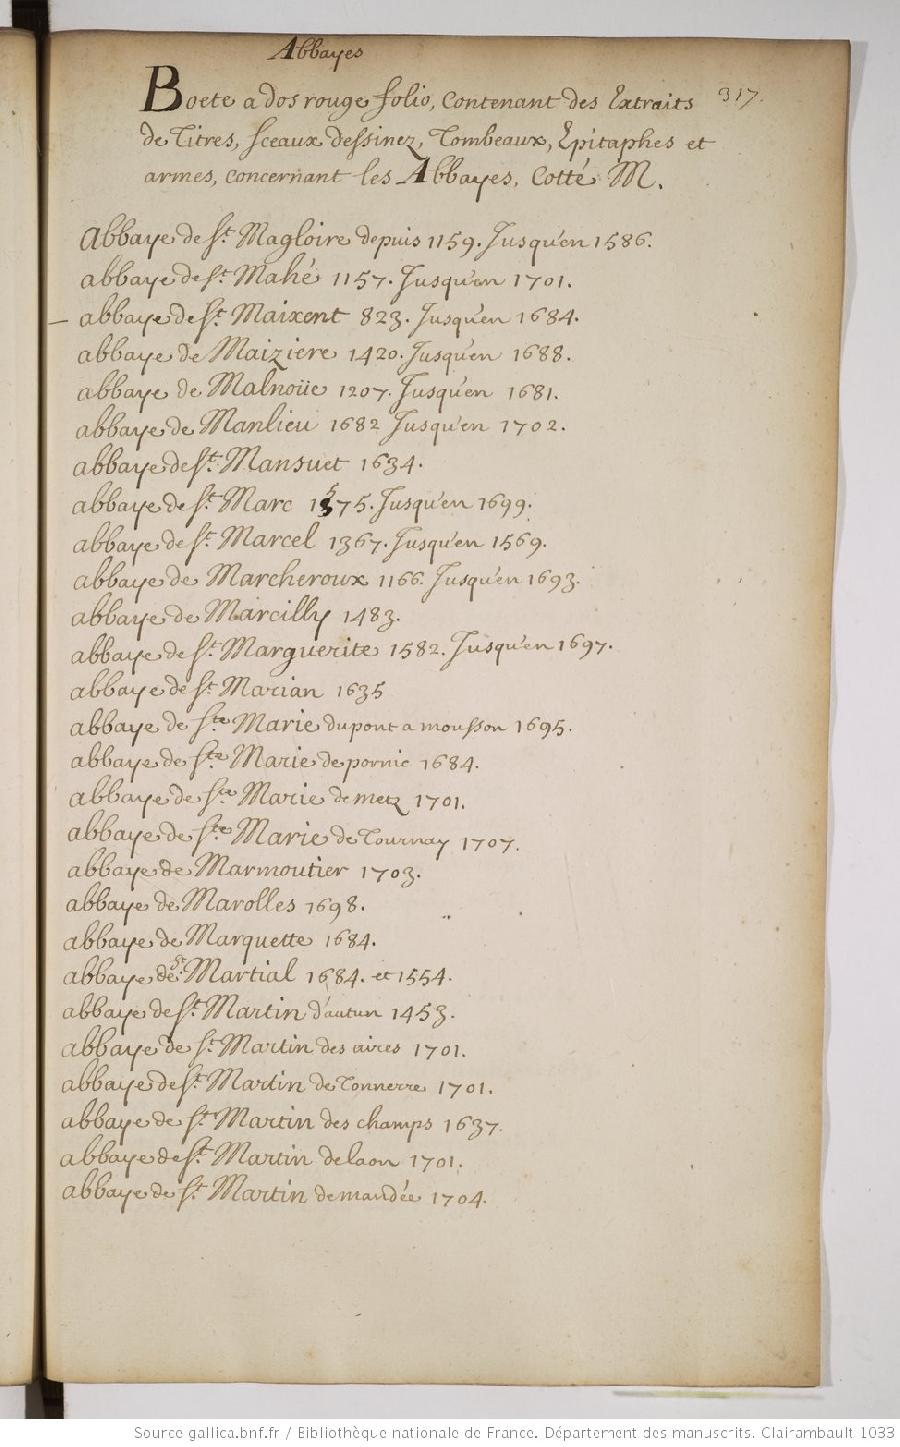 Abbayes
317.
Boete a dos rouge folio, contenant des Extraits
de Titres, sceaux dessinez, Tombeaux, Epitaphes et
armes, concernant les Abbayes, Cotté M.
abbaye de St. Magloire depuis 1159. Jusqu'en 1586.
abbaye de St. Mahé 1157. Jusqu'en 1701.
– abbaye de St. Maixent 823. Jusqu'en 1684.
abbaye de Maiziere 1420. Jusqu'en 1688.
abbaye de Malnoüe 1207. Jusqu'en 1681.
abbaye de Manlieu 1682 Jusqu'en 1702.
abbaye de St. Mansuet 1634.
abbaye de St. Marc 1575. Jusqu'en 1699.
abbaye de St. Marcel 1367. Jusqu'en 1569.
abbaye de Marcheroux 1166. Jusqu'en 1693.
abbaye de Marcilly 1483.
abbaye de St. Marguerite 1582. Jusqu'en 1697.
abbaye de St Marian 1635
abbaye de Ste Marie du pont a mousson 1695.
abbaye de Ste Marie de pornic 1684.
abbaye de Ste Marie de metz 1701.
abbaye de Ste Marie de Tournay 1707.
abbaye de Marmoutier 1703.
abbaye de Marolles 1698.
abbaye de Marquette 1684.
abbaye de St. Martial 1684. et 1554.
abbaye de St. Martin d'autun 1453.
abbaye de St. Martin des aires 1701.
abbaye de St. Martin de Tonnerre 1701.
abbaye de St. Martin des champs 1637.
abbaye de St. Martin de laon 1701.
abbaye de St. Martin de mandée 1704.
Source gallica.bnf.fr / Bibliothèque nationale de France. Département des manuscrits. Clairambault 1033